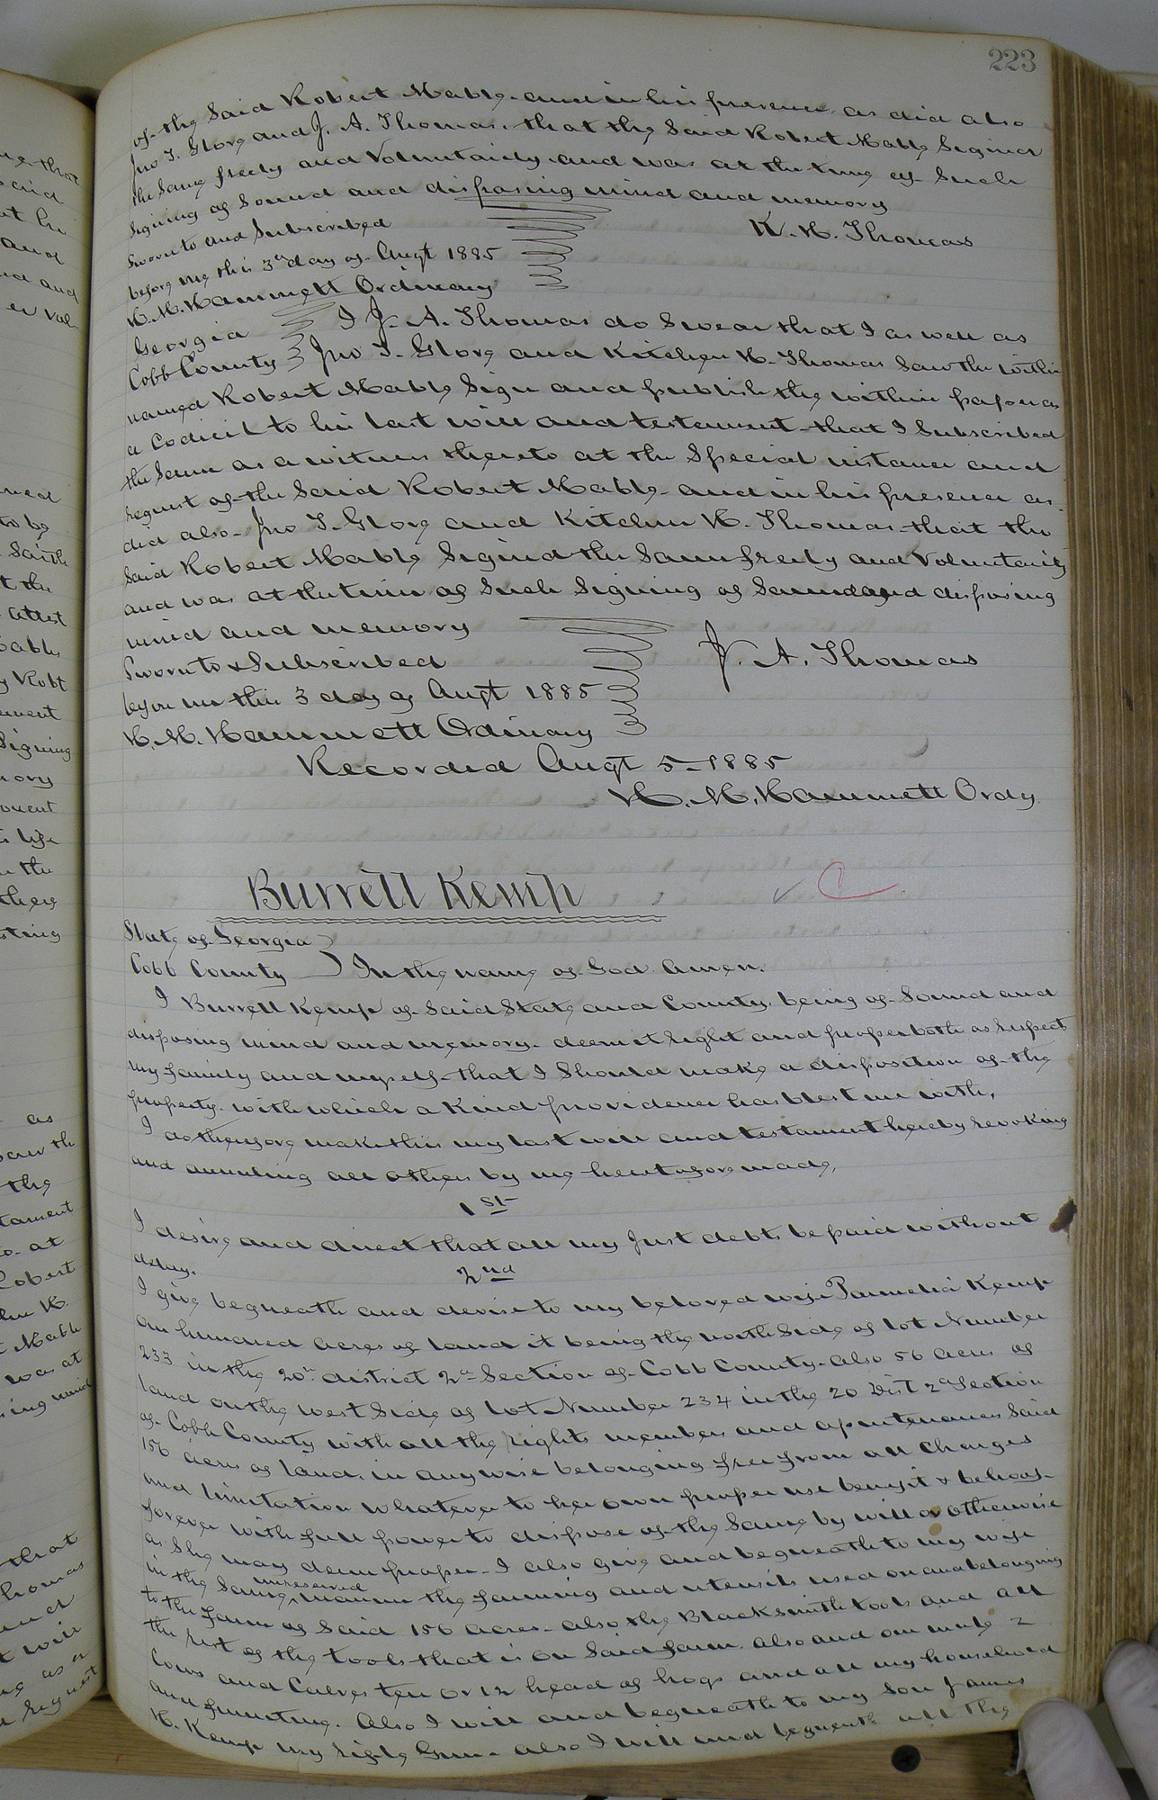 223
of the Said Robert Mable and in his presence as did also
Jno T. Glore and J. A. Thomas. that the Said Robert Mable Signed
the Same freely and Voluntarily and was at the time of Such
Signing of Sound and disposing mind and memory
Sworn to and Subscribed K. H. Thomas
before me this 3rd day of Augt 1885
H. M. Hammett Ordinary
Georgia I J. A. Thomas do Swear that I as well as
Cobb County Jno T. Glore and Kitchen H. Thomas Saw the within
named Robert Mable Sign and publish the within paper as
a Codicil to his last will and testament that I Subscribed
the Same as a witness thereto at the Special instance and
request of the Said Robert Mable and in his presence as
did also Jno T. Glore and Kitchen H. Thomas that the
Said Robert Mable Signd the Same freely and Voluntarily
and was at the time of Such Signing of Sound and disposing
mind and memory
Sworn to & Subscribed J. A. Thomas
before me this 3 day of Augt 1885
H. M. Hammett Ordinary
Recorded Augt 5 1885
H. M. Hammett Ordy
Burrell Kemp
State of Georgia
Cobb County In the name of God Amen.
I Burrell Kemp of Said State and County, being of Sound and
disposing mind and memory deem it right and proper both as respects
my family and myself that I Should make a disposition of the
property with which a Kind providence has blest me with,
I do therefore make this my last will and testament hereby revoking
and annulling all others by me heretofore made,
1st
I desire and direct that all my Just debts be paid without
delay.
2nd
I give begneath and devise to my beloved wife Parmelia Kemp
on hundred acres of land it being the north Side of lot Number
233 in the 20th district 2nd Section of Cobb County. also 56 acres of
land on the west Side of lot Number 234 in the 20 Dist 2nd Section
of Cobb County with all the rights members and apurtenances Said
156 acres of land in anywise belonging free from all Charges
and limitation whatever to her own proper use benefit & behoof
forever with full power to dispose of the Same by will or otherwise
as She may deem proper. I also give and begneath to my wife
in the Same unreserved manner the farming and utensils used on and belonging
to the farm of Said 156 acres. also the Blacksmith tools and all
the rest of the tools that is on Said farm. also and one mule 2
Cows and Calves ten or 12 head of hogs and all my household
and furniture. Also I will and begneath to my Son James
H. Kemp my rifle Gun. also I will and begneath all the